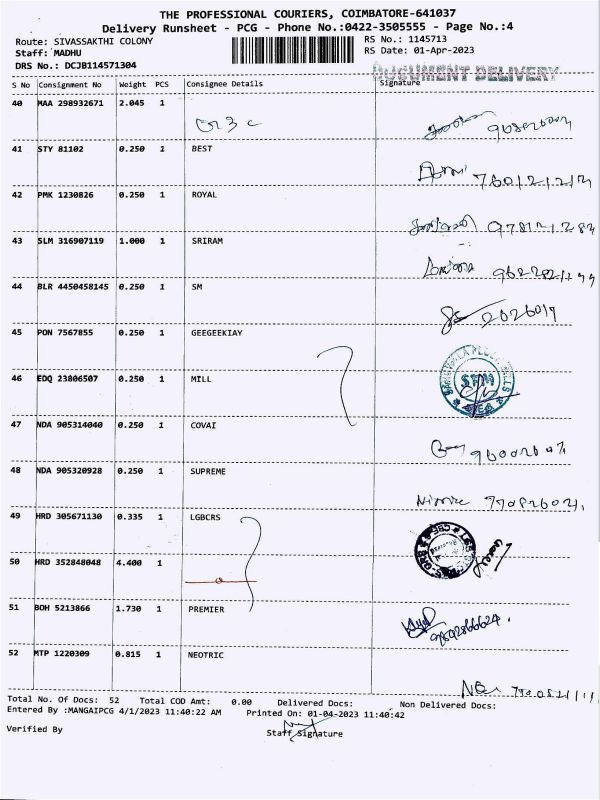 THE PROFESSIONAL COURIERS, COIMBATORE-641037
Delivery Runsheet - PCG - Phone No.:0422-3505555 - Page No.:4
Route: SIVASSAKTHI COLONY RS No.: 1145713
Staff: MADHU RS Date: 01-Apr-2023
DRS No.: DCJB114571304
DOCUMENT DELIVERY
S No Consignment No Weight PCS Consignee Details Signature
40 MAA 298932671 2.045 1
41 STY 81102 0.250 1 BEST
42 PMK 1230826 0.250 1 ROYAL
43 SLM 316907119 1.000 1 SRIRAM
44 BLR 4450458145 0.250 1 SM
45 PON 7567855 0.250 1 GEEGEEKIAY
46 EDQ 23806507 0.250 1 MILL
47 NDA 905314040 0.250 1 COVAI
48 NDA 905320928 0.250 1 SUPREME
49 HRD 305671130 0.335 1 LGBCRS
50 HRD 352848048 4.400 1
51 BOH 5213866 1.730 1 PREMIER
9842866624.
52 MTP 1220309 0.815 1 NEOTRIC
Total No. Of Docs: 52 Total COD Amt: 0.00 Delivered Docs: Non Delivered Docs:
Entered By :MANGAIPCG 4/1/2023 11:40:22 AM Printed On: 01-04-2023 11:40:42
Verified By Staff Signature